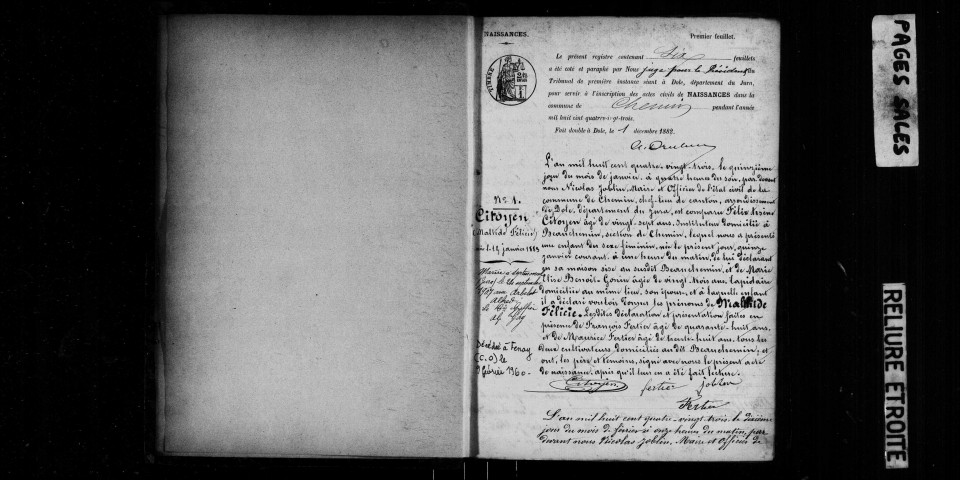 NAISSANCES.
Premier feuillet.
Le présent registre contenant Six feuillets
a été coté et paraphé par Nous juge pour le Président du
Tribunal de première instance séant à Dole, département du Jura,
pour servir à l'inscription des actes civils de NAISSANCES dans la
commune de Chemin pendant l'année
mil huit cent quatre-vingt-trois.
Fait double à Dole, le 1 décembre 1882.
L'an mil huit cent quatre-vingt-trois, le quinzième
jour du mois de janvier, à quatre heures du soir, par devant
nous Nicolas Joblin, Maire et Officier de l'état civil de la
commune de Chemin, chef-lieu de canton, arrondissement
de Dole, département du Jura, est comparu Félix
Citoyen âgé de vingt-sept ans, Instituteur domicilié à
Beauchemin, section de Chemin, lequel nous a présenté
une enfant du sexe féminin, née le présent jour, quinze
janvier courant, à une heure du matin, de lui déclarant
en sa maison sise au susdit Beauchemin, et de Marie
Elise Benoit-Gonin âgée de vingt-trois ans, lapidaire
domiciliée au même lieu, son épouse, et à laquelle enfant
il a déclaré vouloir donner les prénoms de Mathilde
Félicie. Lesdites déclaration et présentation faites en
présence de François Fertier âgé de quarante-huit ans,
et de Maurice Fertier âgé de trente-huit ans, tous les
deux cultivateurs domiciliés audit Beauchemin; et
ont, les père et témoins, signé avec nous le présent acte
de naissance, après qu'il leur en a été fait lecture.
Citoyen fertier Joblin
Fertier
L'an mil huit cent quatre-vingt-trois, le
jour du mois de février à onze heures du matin, par
devant nous Nicolas Joblin, Maire et Officier de
N° 1.
Citoyen
(Mathilde Félicie)
née le 15 janvier 1883
Mariée à
le
1907 avec
Alfred
le
Décédée à Fenay
(C.O) le
février 1960.
PAGES SALES
RELIURE ETROITE